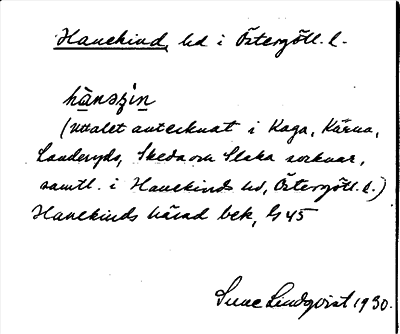 Hanekind, hd i Östergötl. l.
hànəʒ̀in
(Uttalet antecknat i Kaga, Kärna,
Landeryds, Skeda och Slaka socknar,
samtl. i Hanekinds hd, Östergötl. l.)
Hanekinds härad bek, G 45
Sune Lindqvist 1930.